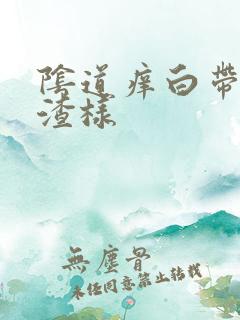 陰道痒白帶
渣樣
無塵骨
未经同意禁止转载